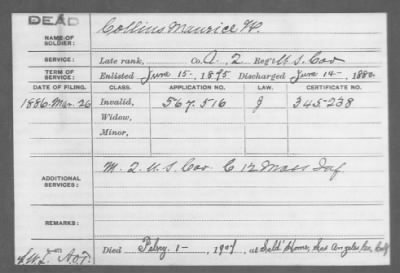 DEAD
NAME OF SOLDIER: Collins Maurice H.
SERVICE: Late rank, Co. A, 2 Reg't U. S. Cav
TERM OF SERVICE: Enlisted June 15-, 1875 Discharged June 14-, 1880.
DATE OF FILING. CLASS. APPLICATION NO. LAW. CERTIFICATE NO.
1886. Mar. 26 Invalid, 567.516 J 345-238
Widow,
Minor,
ADDITIONAL SERVICES: M. 2 U. S. Cav. C 12 Mass Inf
REMARKS:
Died Feby. 1-, 1907, at Sold' Home, Los Angeles Co, Calf